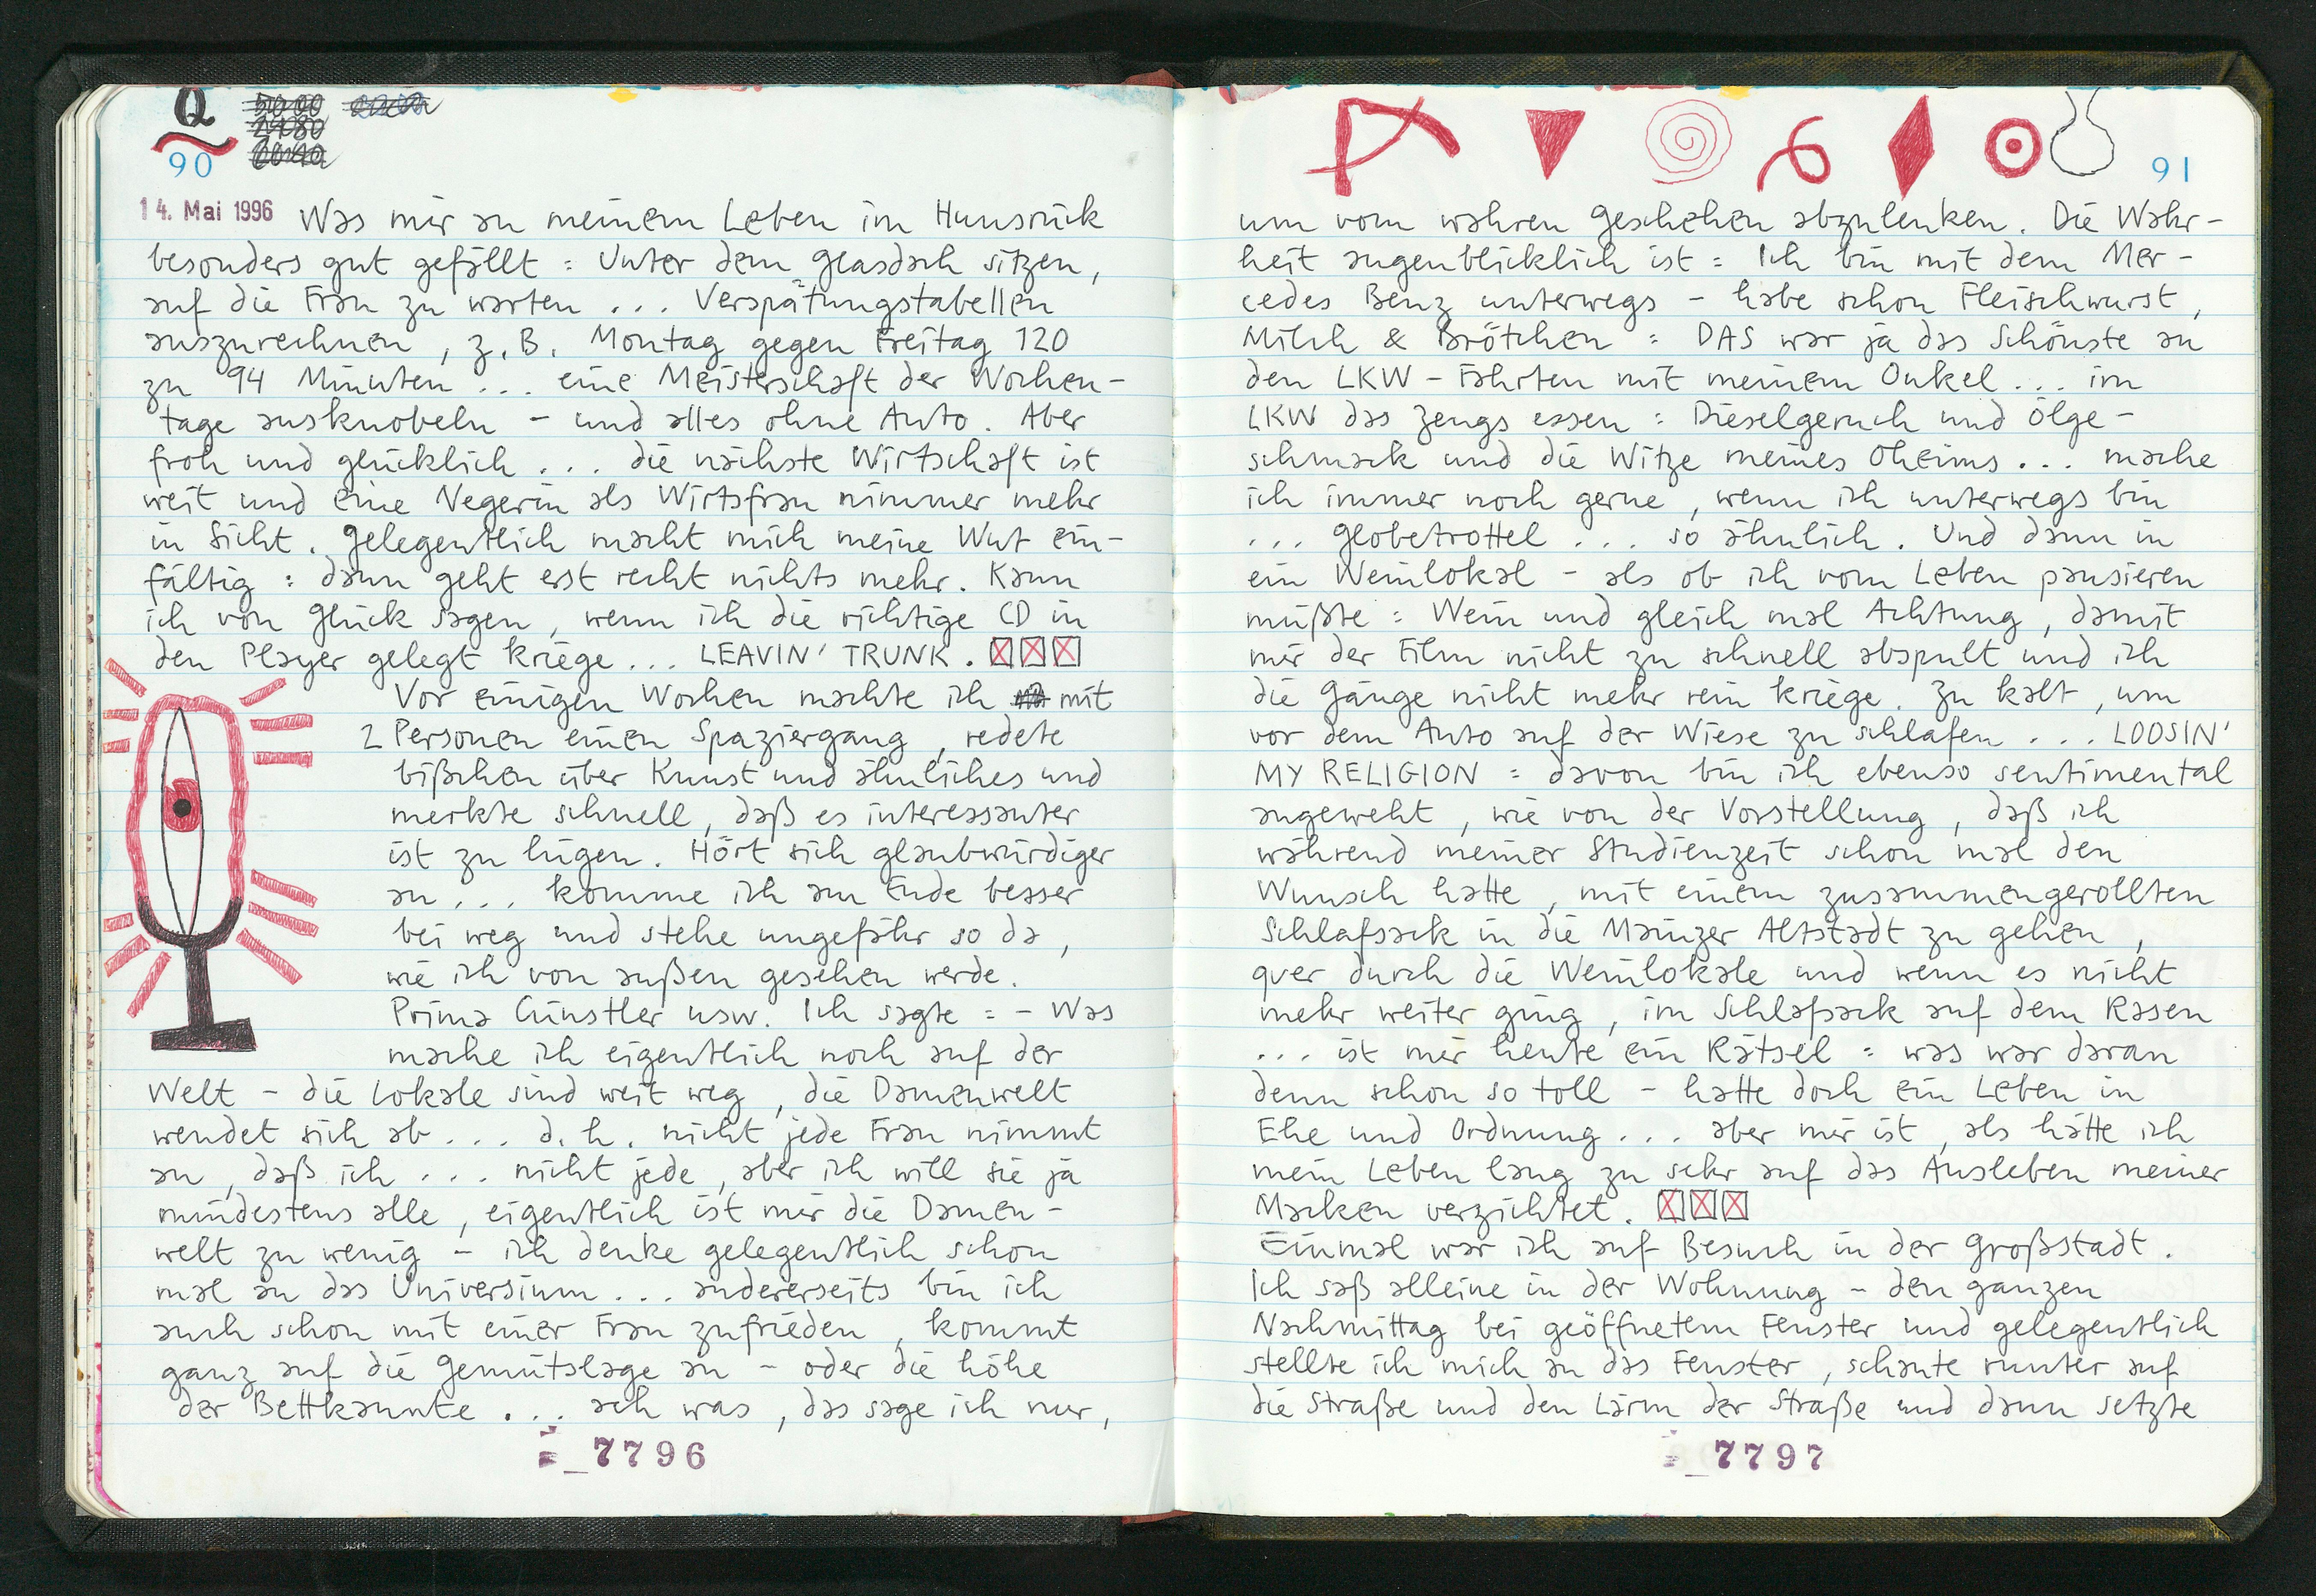 Q
90
14. Mai 1996 Was mir an meinem Leben im Hunsrück
besonders gut gefällt : Unter dem Glasdach sitzen,
auf die Frau zu warten ... Verspätungstabellen
auszurechnen, z.B. Montag gegen Freitag 120
zu 94 Minuten ... eine Meisterschaft der Wochen-
tage ausknobeln - und alles ohne Auto. Aber
froh und glücklich ... die nächste Wirtschaft ist
weit und eine Negerin als Wirtsfrau nimmer mehr
in Sicht. Gelegentlich macht mich meine Wut ein-
fältig : dann geht erst recht nichts mehr. Kann
ich von Glück sagen, wenn ich die richtige CD in
den Player gelegt kriege ... LEAVIN' TRUNK.
Vor einigen Wochen machte ich mit
2 Personen einen Spaziergang, redete
bißchen über Kunst und ähnliches und
merkte schnell, daß es interessanter
ist zu lügen. Hört sich glaubwürdiger
an ... komme ich am Ende besser
bei weg und stehe ungefähr so da,
wie ich von außen gesehen werde.
Prima Cünstler usw. Ich sagte : - Was
mache ich eigentlich noch auf der
Welt - die Lokale sind weit weg, die Damenwelt
wendet sich ab ... d.h. nicht jede Frau nimmt
an, daß ich ... nicht jede, aber ich will sie ja
mindestens alle, eigentlich ist mir die Damen-
welt zu wenig - ich denke gelegentlich schon
mal an das Universium ... andererseits bin ich
auch schon mit einer Frau zufrieden, kommt
ganz auf die Gemütslage an - oder die Höhe
der Bettkannte ... ach was, das sage ich nur,
7796
91
um vom wahren Geschehen abzulenken. Die Wahr-
heit augenblicklich ist : Ich bin mit dem Mer-
cedes Benz unterwegs - habe schon Fleischwurst,
Milch & Brötchen : DAS war ja das Schönste an
den LKW-Fahrten mit meinem Onkel ... im
LKW das Zeugs essen : Dieselgeruch und Ölge-
schmack und die Witze meines Oheims ... mache
ich immer noch gerne, wenn ich unterwegs bin
... Globetrottel ... so ähnlich. Und dann in
ein Weinlokal - als ob ich vom Leben pausieren
müßte : Wein und gleich mal Achtung, damit
mir der Film nicht zu schnell abspult und ich
die Gänge nicht mehr rein kriege. Zu kalt, um
vor dem Auto auf der Wiese zu schlafen ... LOOSIN'
MY RELIGION : davon bin ich ebenso sentimental
angeweht, wie von der Vorstellung, daß ich
während meiner Studienzeit schon mal den
Wunsch hatte, mit einem zusammengerollten
Schlafsack in die Mainzer Altstadt zu gehen,
quer durch die Weinlokale und wenn es nicht
mehr weiter ging, im Schlafsack auf dem Rasen
... ist mir heute ein Rätsel : was war daran
denn schon so toll - hatte doch ein Leben in
Ehe und Ordnung ... aber mir ist, als hätte ich
mein Leben lang zu sehr auf das Ausleben meiner
Macken verzichtet.
Einmal war ich auf Besuch in der Großstadt.
Ich saß alleine in der Wohnung - den ganzen
Nachmittag bei geöffnetem Fenster und gelegentlich
stellte ich mich an das Fenster, schaute runter auf
die Straße und den Lärm der Straße und dann setzte
7797